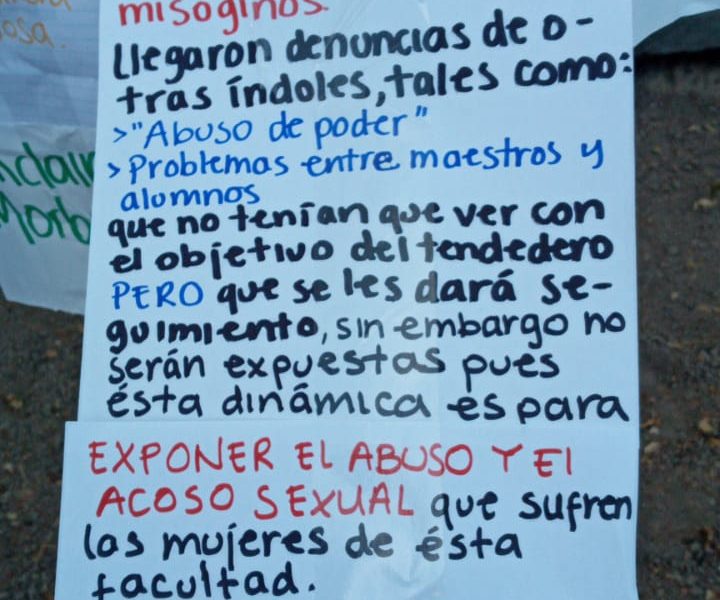 misoginos.
llegaron denuncias de o-
tras índoles, tales como:
>"Abuso de poder"
>Problemas entre maestros y
alumnos
que no tenían que ver con
el objetivo del tendedero
PERO que se les dará se-
guimiento, sin embargo no
serán expuestas pues
ésta dinámica es para
EXPONER EL ABUSO Y El
ACOSO SEXUAL que sufren
las mujeres de ésta
facultad.